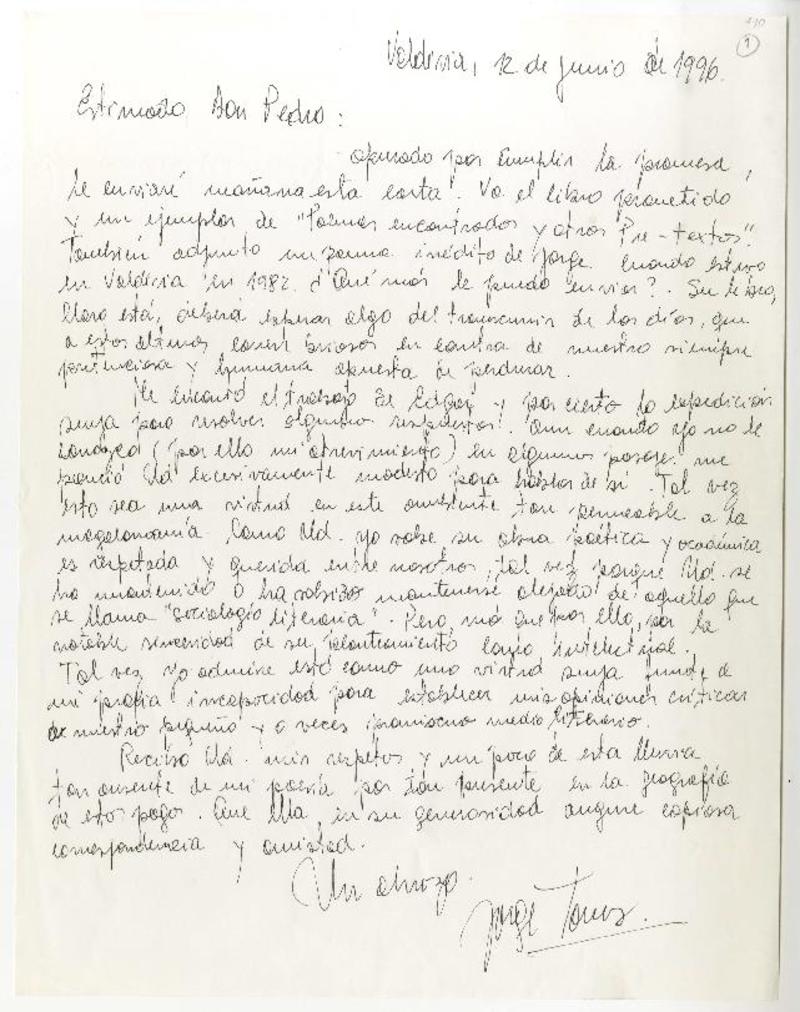 210
1
Valdivia, 12 de junio de 1996.
Estimado Don Pedro:
apurado por cumplir la promesa,
le enviaré mañana esta carta. Va el libro prometido
y un ejemplar de "Poemas encontrados y otros Pre-textos".
También adjunto un poema inédito de Jorge cuando estuvo
en Valdivia en 1982. ¿Qué más le puedo enviar?. Su
claro está, deberá esperar algo del transcurrir de los días, que
a estos últimos corren briosos en contra de nuestra siempre
pretenciosa y humana apuesta de perdurar.
Me encantó el trabajo de Edgar y por cierto la expedición
suya para resolver algunas respuestas. Aun cuando yo no le
conozca (por ello mi atrevimiento) en algunos pasajes me
pareció Ud excesivamente modesto para hablar de sí. Tal vez
esto sea una virtud en este ambiente tan permeable a la
megalomanía. Como Ud. ya sabe su obra poética y académica
es respetada y querida entre nosotros, tal vez porque Ud. se
ha mantenido o ha sabido mantenerse alejado de aquello que
se llama "sociología literaria". Pero, más que por ello, por la
notable sinceridad de su planteamiento intelectual.
Tal vez yo admire esto como una virtud suya de
mi propia incapacidad para establecer mis opiniones críticas
de nuestro pequeño y a veces promiscuo medio literario.
Reciba Ud. mis respetos y un poco de esta lluvia
tan ausente de mi poesía por tan presente en la geografía
de estos pagos. Que ella, en su generosidad augure copiosa
correspondencia y amistad.
Un abrazo.
Jorge Torres.